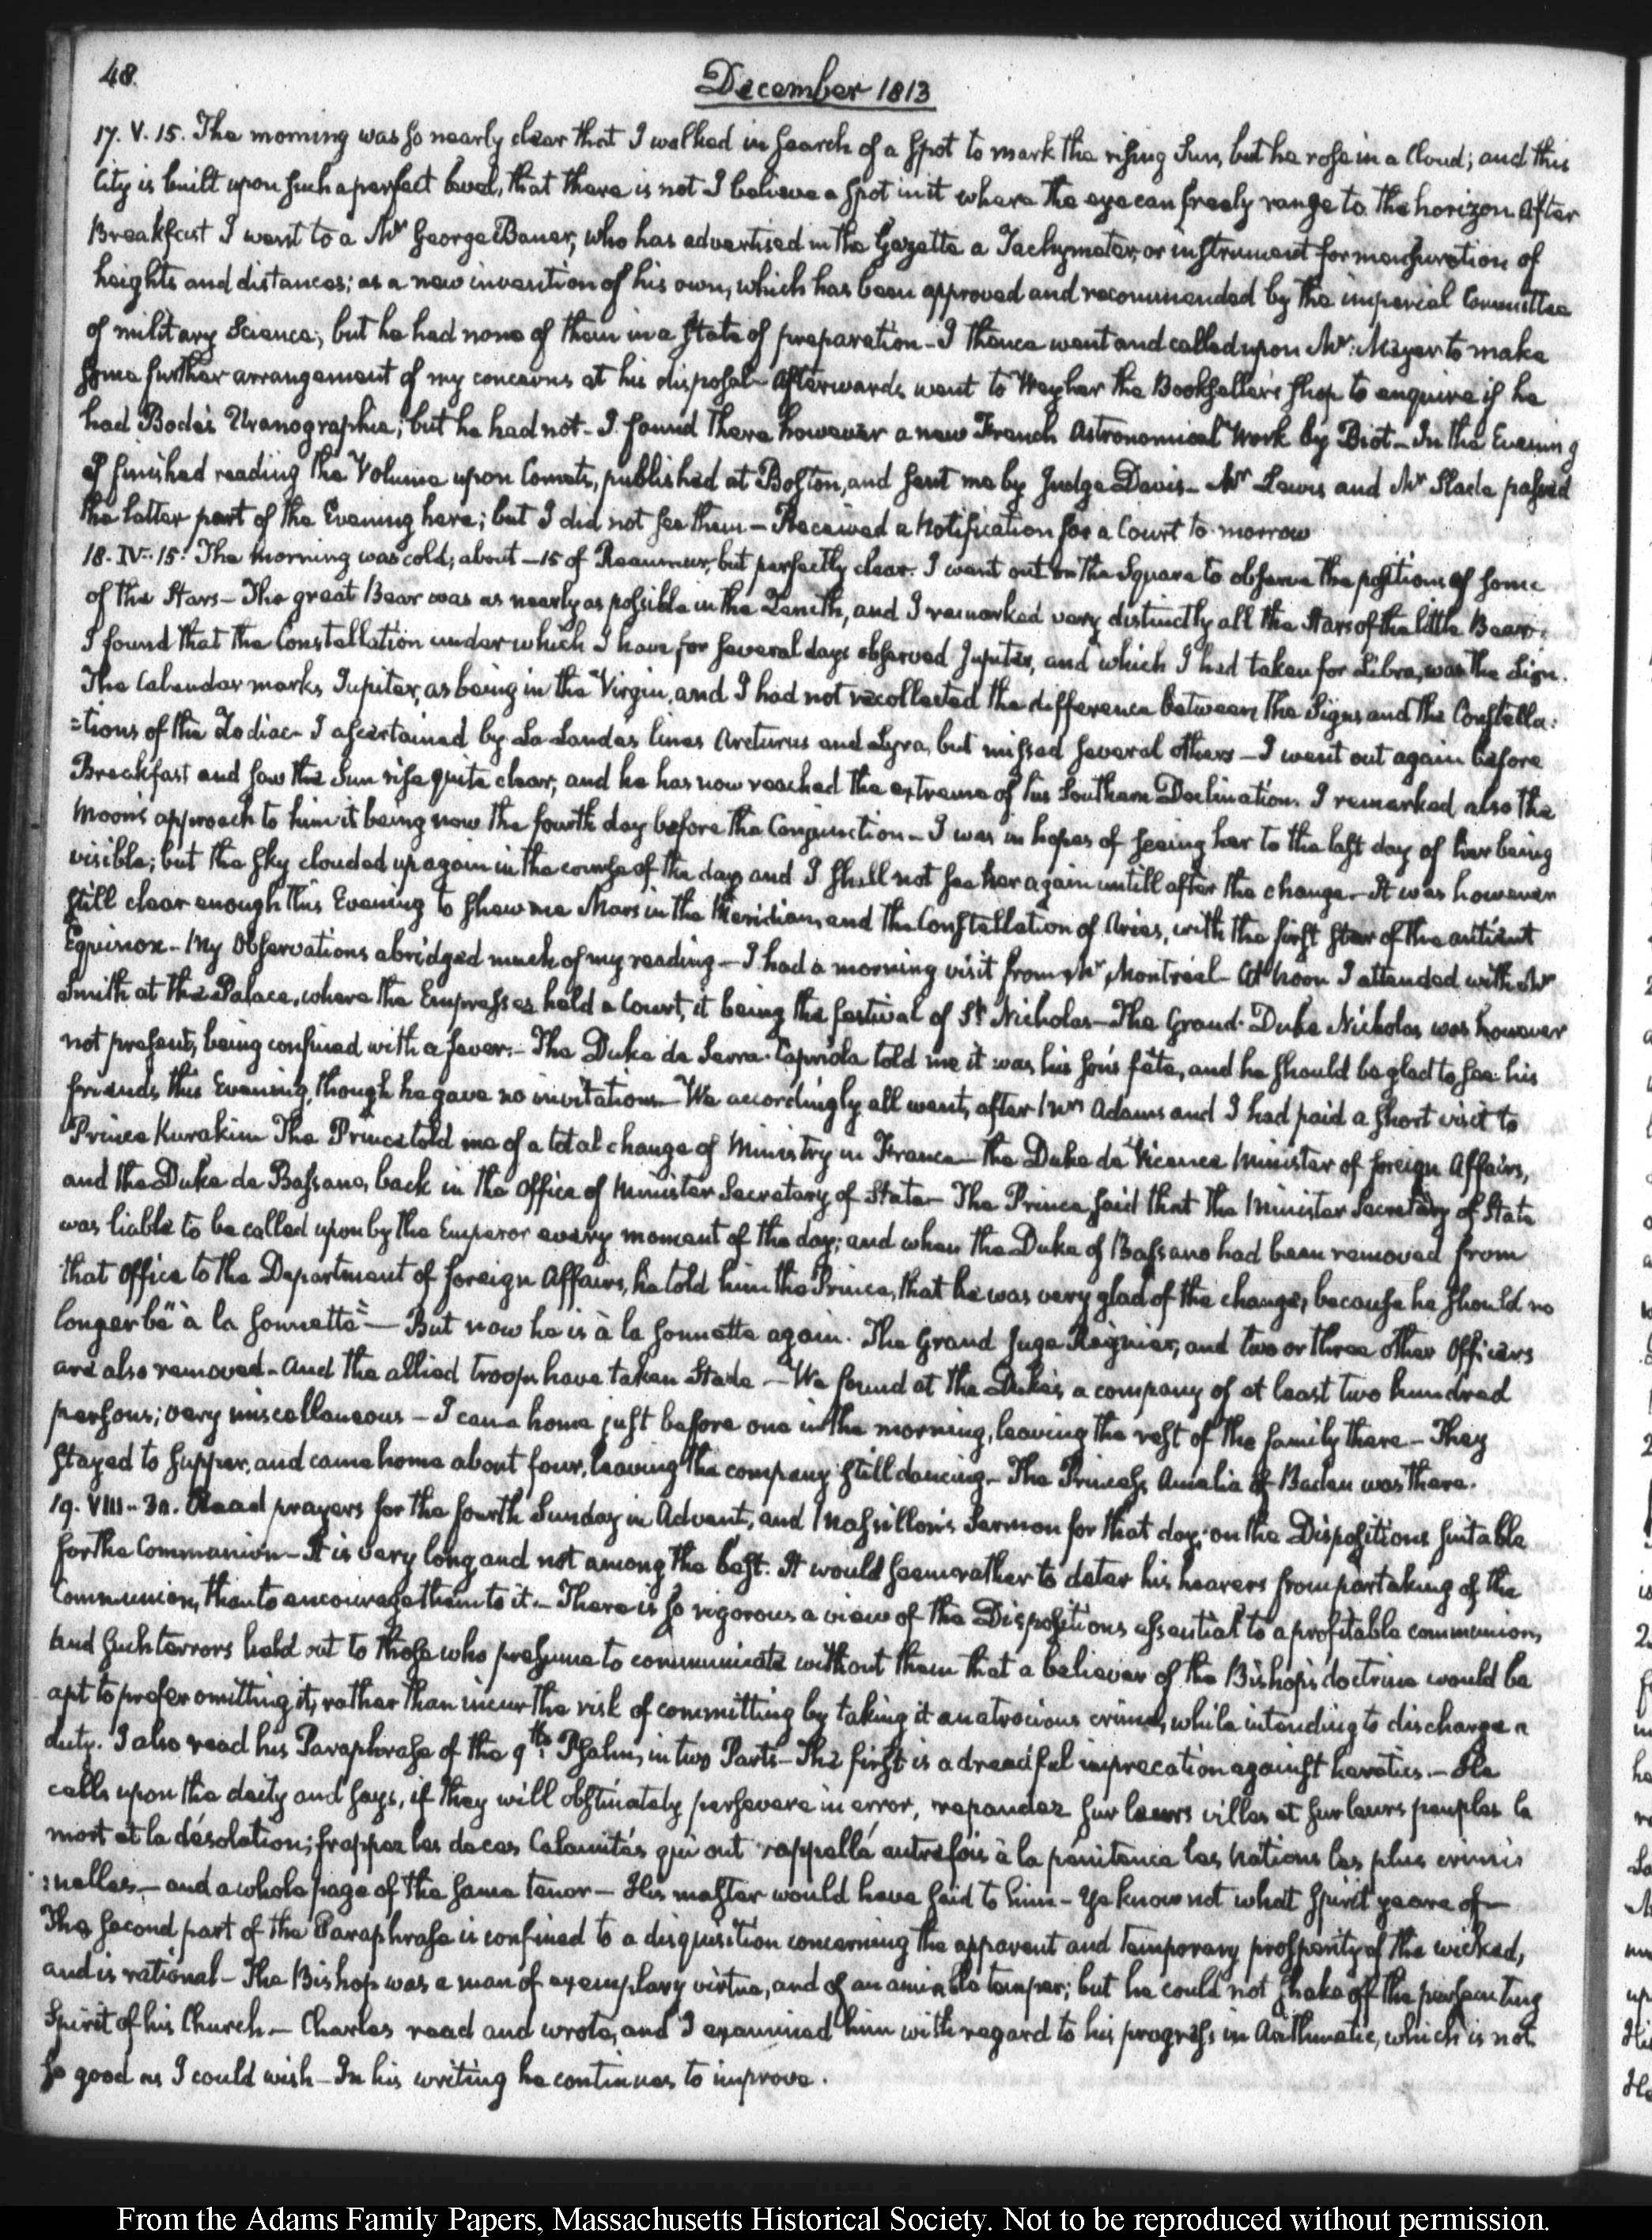 48.
December 1813
17. V. 15. The morning was so nearly clear that I walked in search of a spot to mark the rising Sun, but he rose in a Cloud; and this
City is built upon such a perfect level, that there is not I believe a spot in it where the eye can freely range to the horizon After
Breakfast I went to a Mr. George Bauer, who has advertised in the Gazette a Tachymeter, or instrument for mensuration of
heights and distances; as a new invention of his own, which has been approved and recommended by the imperial Committee
of military Science; but he had none of them in a state of preparation - I thence went and called upon Mr. Meyer to make
some further arrangement of my concerns at his disposal - Afterwards went to Weyher the Bookseller's shop to enquire if he
had Bode's Uranographie; but he had not - I found there however a new French Astronomical Work by Biot - In the Evening
I finished reading the Volume upon Comets, published at Boston, and sent me by Judge Davis - Mr Lewis and Mr Slade passed
the latter part of the Evening here; but I did not see them - Received a Notification for a Court to-morrow
18. IV:15: The morning was cold, about -15 of Reaumur, but perfectly clear. I went out on the Square to observe the positions of some
of the Stars - The great Bear was as nearly as possible in the Zenith, and I remarked very distinctly all the Stars of the little Bear.
I found that the Constellation under which I have, for several days observed Jupiter, and which I had taken for Libra, was the Lion.
The Calendar marks Jupiter, as being in the Virgin, and I had not recollected the difference between the Signs and the Constella:
=tions of the Zodiac - I ascertained by La Lande's lines Arcturus and Lyra, but missed several others - I went out again before
Breakfast and saw the Sun rise quite clear, and he has now reached the extreme of his Southern Declination. I remarked also the
Moon's approach to him it being now the fourth day before the Conjunction - I was in hopes of seeing her to the last day of her being
visible; but the sky clouded up again in the course of the day and I shall not see her again untill after the change - It was however
still clear enough this Evening to shew me Mars in the Meridian, and the Constellation of Aries, with the first star of the antient
Equinox - My Observations abridged much of my reading - I had a morning visit from Mr. Montréal - At Noon I attended with Mr
Smith at the Palace, where the Empresses held a Court, it being the festival of St. Nicholas - The Grand-Duke Nicholas was however
not present, being confined with a fever. - The Duke de Serra-Capriola told me it was his son's fête, and he should be glad to see his
friends this Evening, though he gave no invitations - We accordingly all went, after Mrs Adams and I had paid a short visit to
Prince Kurakin The Prince told me of a total change of Ministry in France - the Duke de Vicence Minister of foreign Affairs,
and the Duke de Bassano, back in the Office of Minister Secretary of State - The Prince said that the Minister Secretary of State
was liable to be called upon by the Emperor every moment of the day; and when the Duke of Bassano had been removed from
that Office to the Department of foreign Affairs, he told him the Prince, that he was very glad of the change, because he should no
longer be "à la sonnette" - But now he is à la sonnette again. The Grand Juge Regnier, and two or three other Officers
are also removed - And the allied troops have taken Stade - We found at the Duke's a company of at least two hundred
persons; very miscellaneous - I came home just before one in the morning, leaving the rest of the family there - They
stayed to supper, and came home about four, leaving the company still dancing - The Princess Amelia of Baden was there.
19. VIII-30. Read prayers for the fourth Sunday in Advent, and Massillon's Sermon for that day; on the Dispositions suitable
for the Communion - It is very long and not among the best. It would seem rather to deter his hearers from partaking of the
Communion, than to encourage them to it. - There is so rigorous a view of the Dispositions essential to a profitable communion,
and such terrors held out to those who presume to communicate without them that a believer of the Bishop's doctrine would be
apt to prefer omitting it, rather than incur the risk of committing by taking it an atrocious crime, while intending to discharge a
duty. I also read his Paraphrase of the 9th. Psalm, in two Parts - The first is a dreadful imprecation against heretics. - He
calls upon the deity and says, if they will obstinately persevere in error, repandez sur leurs villes et sur leurs peuples la
mort et la désolation; frappez les de ces Calamités qui ont rappellé autrefois à la pénitence les Nations les plus crimi:
:nelles - and a whole page of the same tenor - His master would have said to him - Ye know not what Spirit ye are of -
The second part of the Paraphrase is confined to a disquisition concerning the apparent and temporary prosperity of the wicked,
and is rational - The Bishop was a man of exemplary virtue, and of an amiable temper; but he could not shake off the persecuting
Spirit of his Church - Charles read and wrote, and I examined him with regard to his progress in Arithmetic, which is not
so good as I could wish - In his writing he continues to improve.
From the Adams Family Papers, Massachusetts Historical Society. Not to be reproduced without permission.